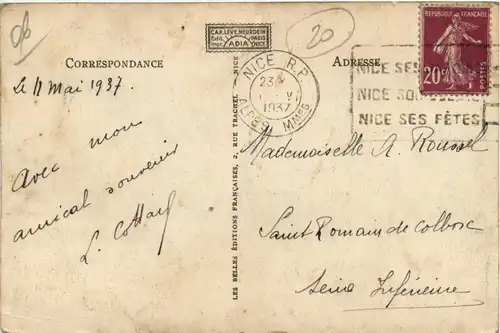 20
CAP. LEVY & NEURDEIN
ADIA
NICE
CORRESPONDANCE
ADRESSE
Le 11 Mai 1937.
Avec mon
amical souvenir
L. Cottard
LES BELLES ÉDITIONS FRANÇAISES, 2, RUE TRACHEL - NICE
NICE R.P.
23
V
1937
ALPES MMES
NICE SES
NICE SON
NICE SES FÊTES
REPUBLIQUE FRANÇAISE
20c
Mademoiselle A. Roussel
Saint Romain de Colbosc
Seine Inférieure